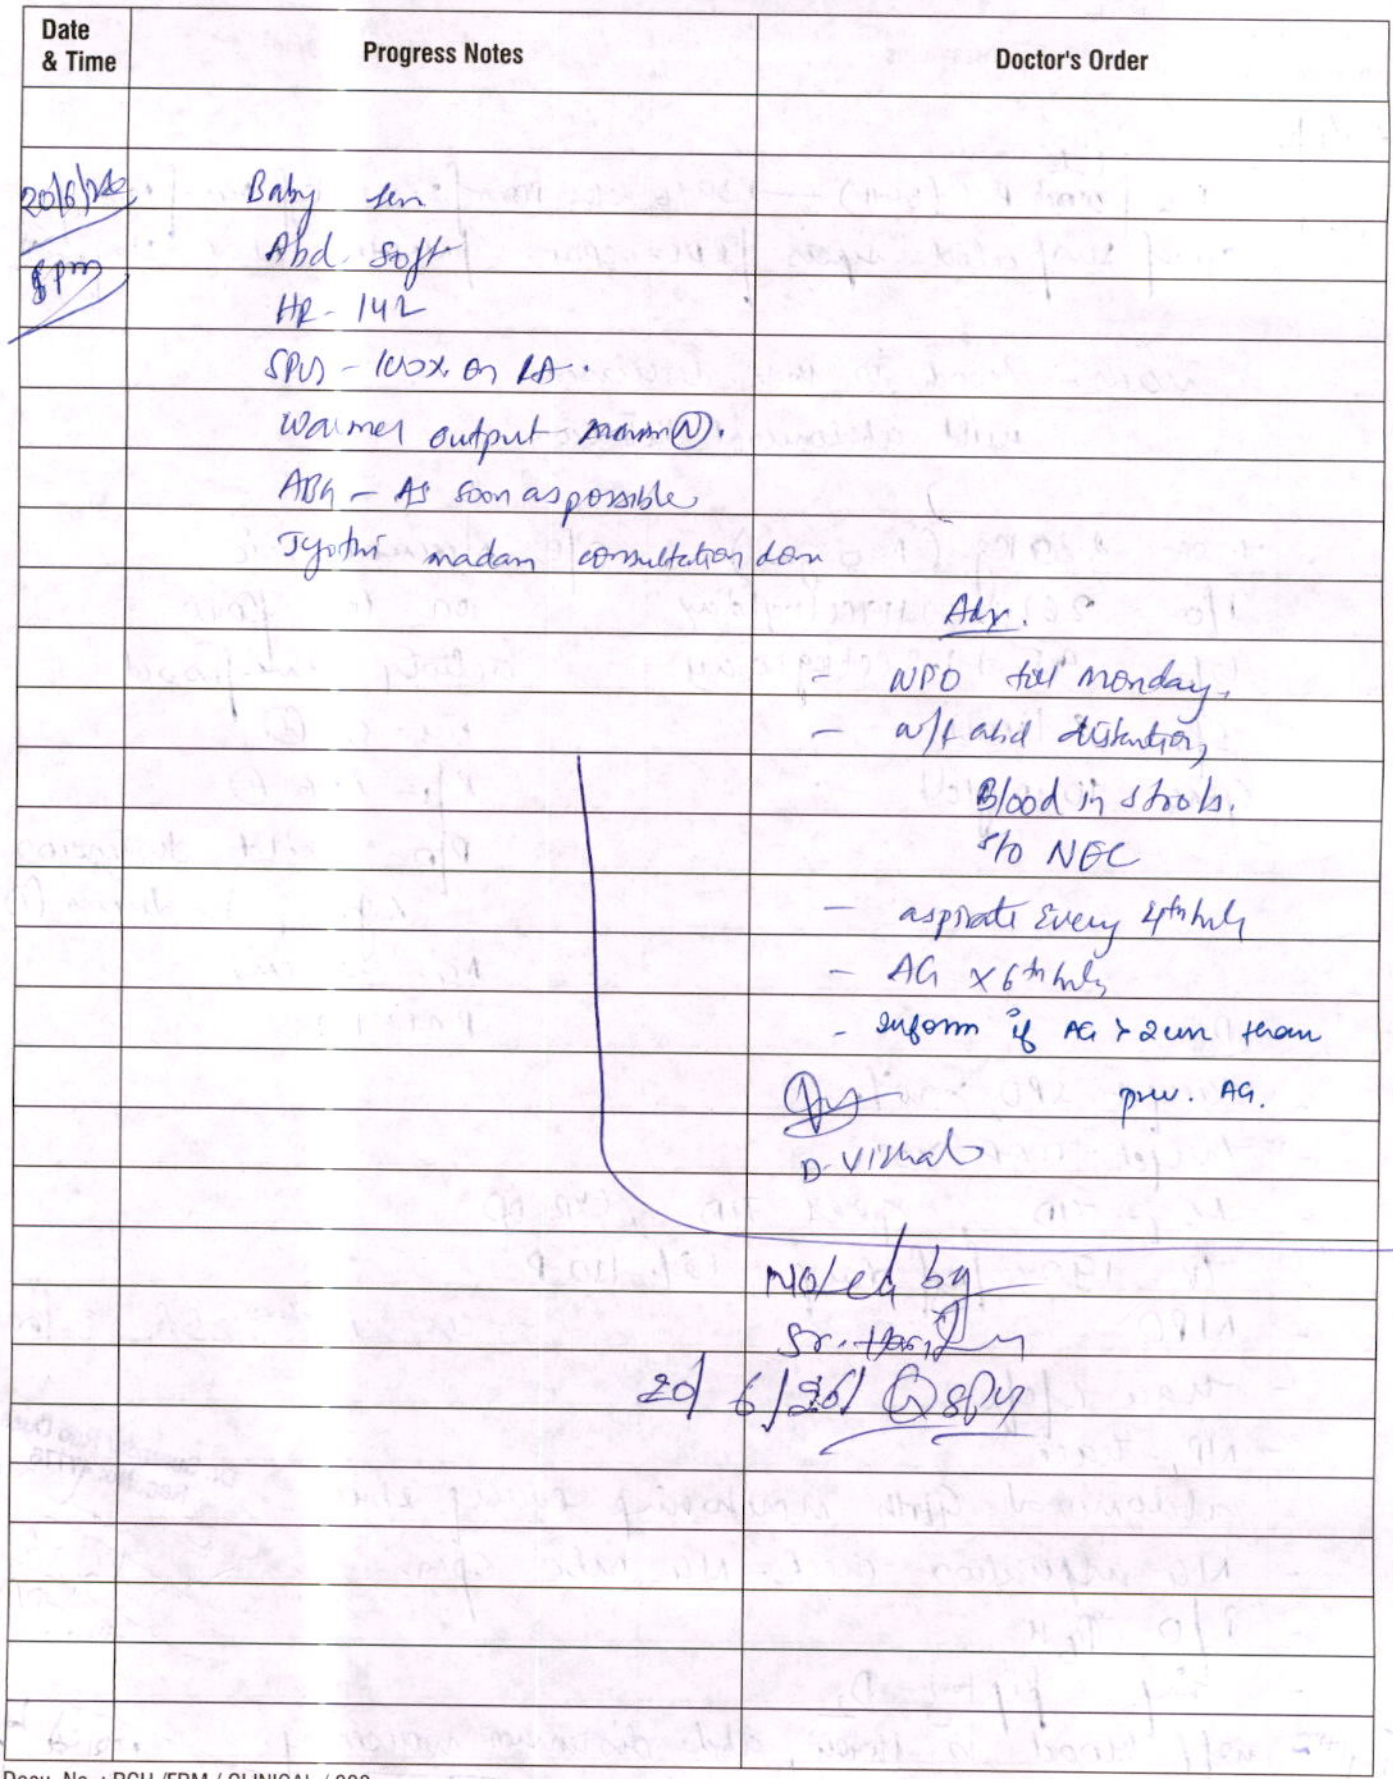 Date
& Time
Progress Notes
Doctor's Order
20/6/26
8pm
Baby seen
Abd. Soft
HR - 142
SPO2 - 100% on RA.
Warmer output Ⓝ.
ABG - As soon as possible
Jyothi madam consultation done
Adv.
- NPO till Monday,
- w/f abd distention,
Blood in stools.
s/o NEC
- aspirate Every 4th hrly
- AG x 6th hrly
- Inform if AG > 2cm than
prev. AG.
Dr Vishal
Noted by
Sr.
20/6/26/ @ 8PM